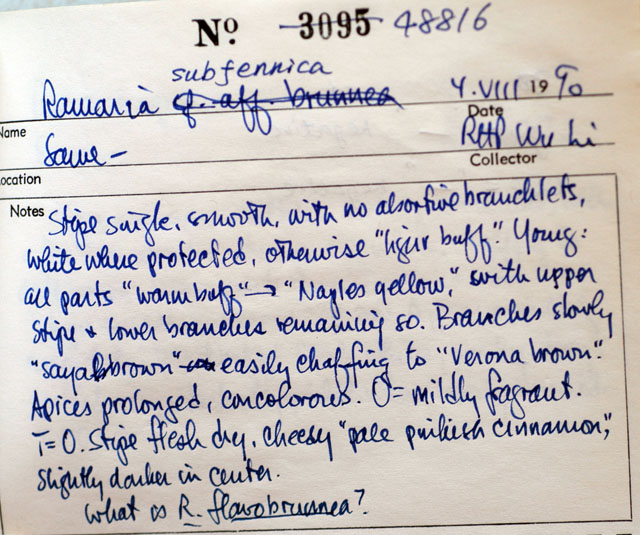 Nº 3095 48816
subfennica
Ramaria cf. aff. brunnea 4.VIII 1990
Name Date
Same - RHP Wu Li
Location Collector
Notes Stipe single, smooth, with no abortive branchlets,
white where protected, otherwise "light buff." Young:
all parts "warm buff" → "Naples yellow," with upper
stipe & lower branches remaining so. Branches slowly
"sayal brown" easily chaffing to "Verona brown".
Apices prolonged, concolorous. O= mildly fragrant.
T=O. Stipe flesh dry, cheesy "pale pinkish cinnamon",
slightly darker in center.
What is R. flavobrunnea?